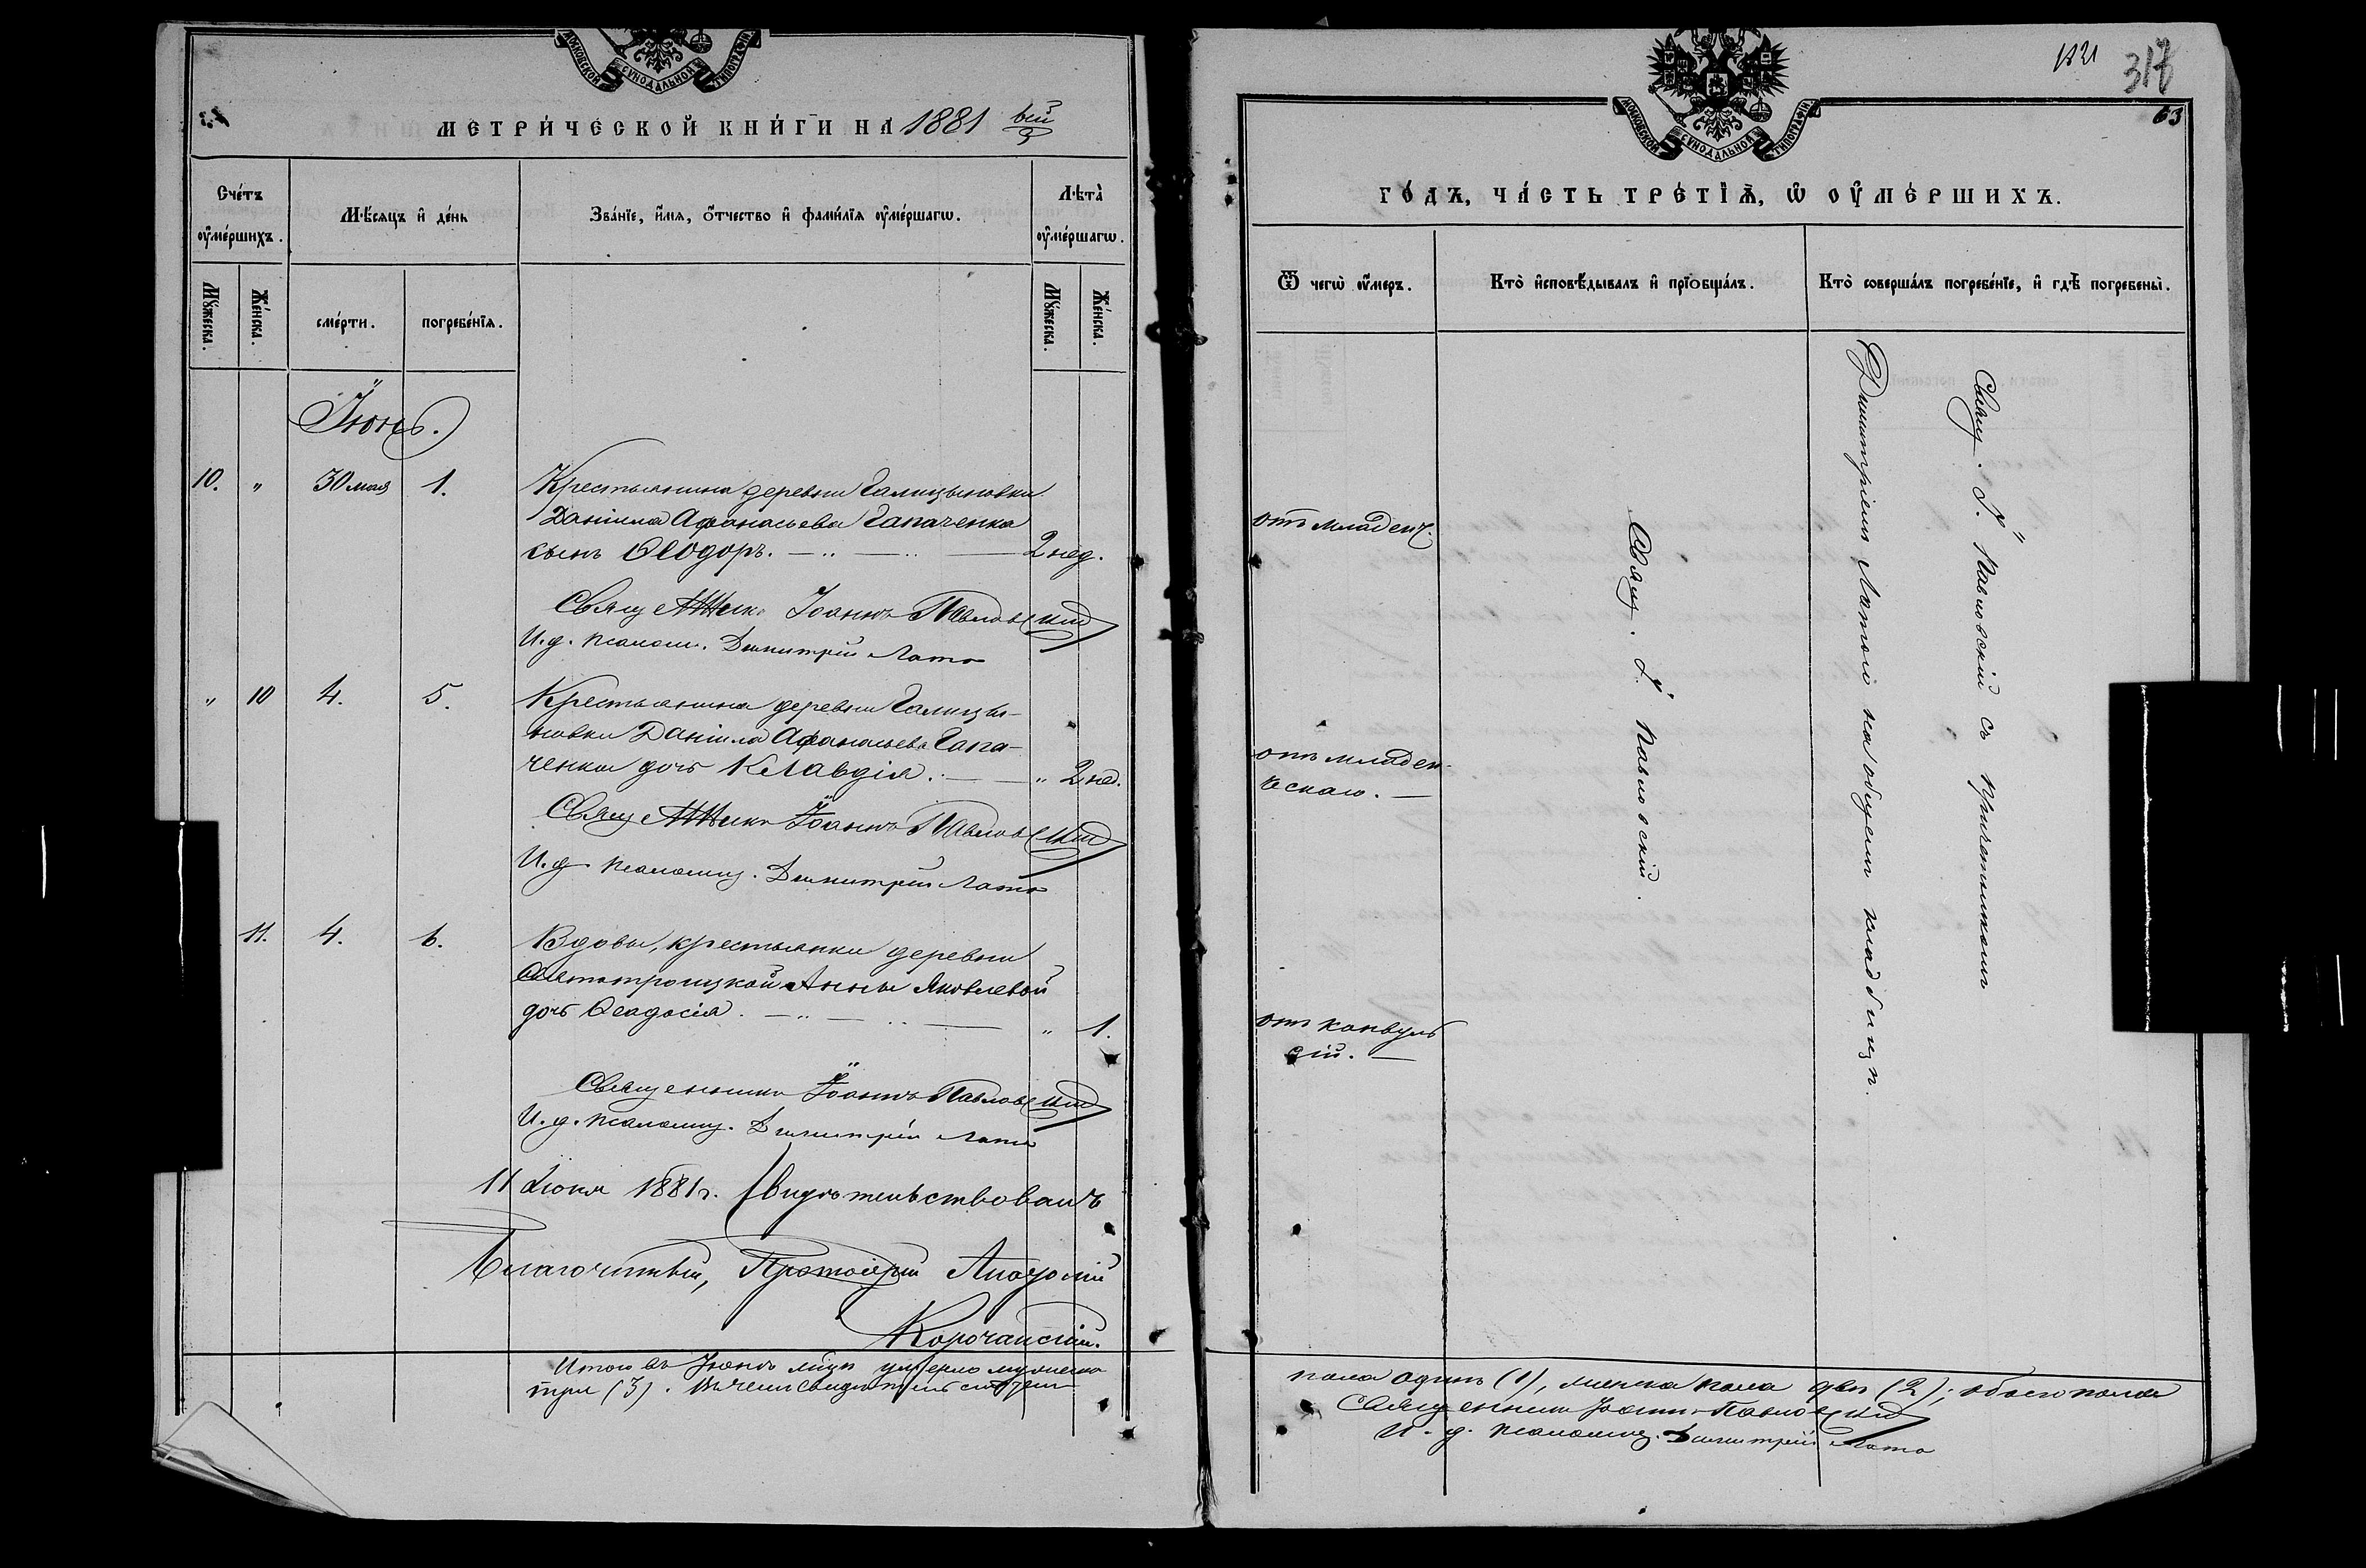 МОСКОВСКОЙ СУНОДАЛЬНОЙ ТИПОГРАФІИ
МЕТРИ́ЧЕСКОЙ КНИ́ГИ НА 1881 вый
Сче́тъ ᲂу҆ме́ршихъ.
Мѣ́сяцъ и҆ де́нь
Зва́нїе, и҆́мя, ѻ҆́тчество и҆ фами́лїя ᲂу҆ме́ршагѡ.
Лѣта̀ ᲂу҆ме́ршагѡ.
Мꙋ́жеска.
Же́нска.
сме́рти.
погребе́нїя.
Мꙋ́жеска.
Же́нска.
Іюнь.
10. " 30 мая 1. Крестьянина деревни Галицыновки
Даніила Афанасьева Гапаченка
сынъ Ѳеодоръ. 2 нед.
Священникъ Іоаннъ Павловскій
И. д. псаломщ. Димитрій Лато
" 10 4. 5. Крестьянина деревни Галицы-
новки Даніила Афанасьева Гапа-
ченка дочь Клавдія. " 2 нед.
Священникъ Іоаннъ Павловскій
И. д. псаломщ. Димитрій Лато
11. 4. 6. Вдовы, крестьянки деревни
Святотроицкой Анны Яковлевой
дочь Ѳеодосія. " 1.
Священникъ Іоаннъ Павловскій
И. д. псаломщ. Димитрій Лато
11 Іюня 1881 г. Свидѣтельствовалъ
Благочинный, Протоіерей
Корочанскій.
Итого въ Іюнѣ мѣсяцѣ умерло мужеска
три (3). Въ чемъ свидѣтельствуемъ
1881
317
63
МОСКОВСКОЙ СУНОДАЛЬНОЙ ТИПОГРАФІИ
ГО́ДЪ, ЧА́СТЬ ТРЕ́ТІѦ, Ѡ҆ ОУ҆МЕ́РШИХЪ.
Ѿ чегѡ̀ ᲂу҆́меръ.
Кто̀ и҆сповѣ́дывалъ и҆ прїобща́лъ.
Кто̀ соверша́лъ погребе́нїе, и҆ гдѣ̀ погребены̀.
отъ младенч.
отъ младен-
ческаго.
отъ конвуль
сій.
Свящ. І. Павловскій.
Свящ. І. Павловскій съ причетникомъ
Димитріемъ Латой на общемъ кладбищѣ.
пола одинъ (1), женска пола двѣ (2); обоего пола
Священникъ Іоаннъ Павловскій
И. д. псаломщ. Димитрій Лато